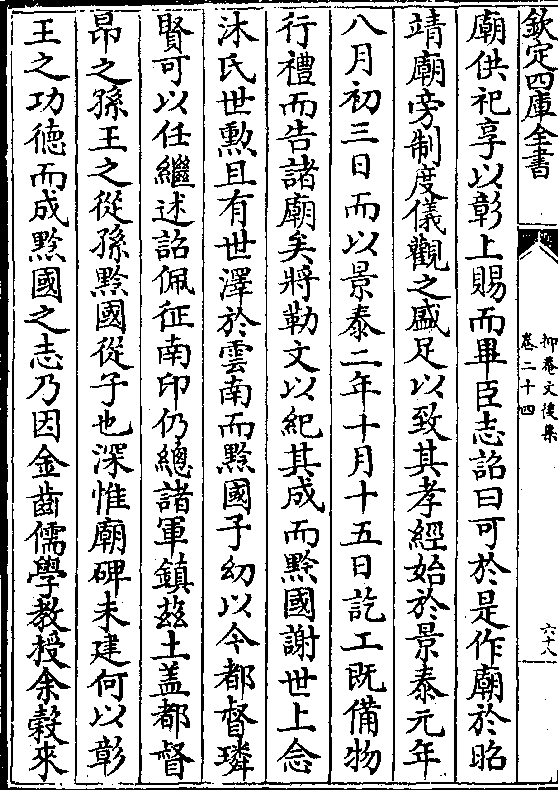 欽定四庫全書
抑菴文後集
卷二十四
六十八
廟供祀享以彰上賜而畢臣志詔曰可於是作廟於昭
靖廟旁制度儀觀之盛足以致其孝經始於景泰元年
八月初三日而以景泰二年十月十五日訖工既備物
行禮而告諸廟矣將勒文以紀其成而黔國謝世上念
沐氏世勳且有世澤於雲南而黔國子幼以今都督璘
賢可以任繼述詔佩征南印仍總諸軍鎮茲土蓋都督
昂之孫王之從孫黔國從子也深惟廟碑未建何以彰
王之功德而成黔國之志乃因金齒儒學教授余縠來